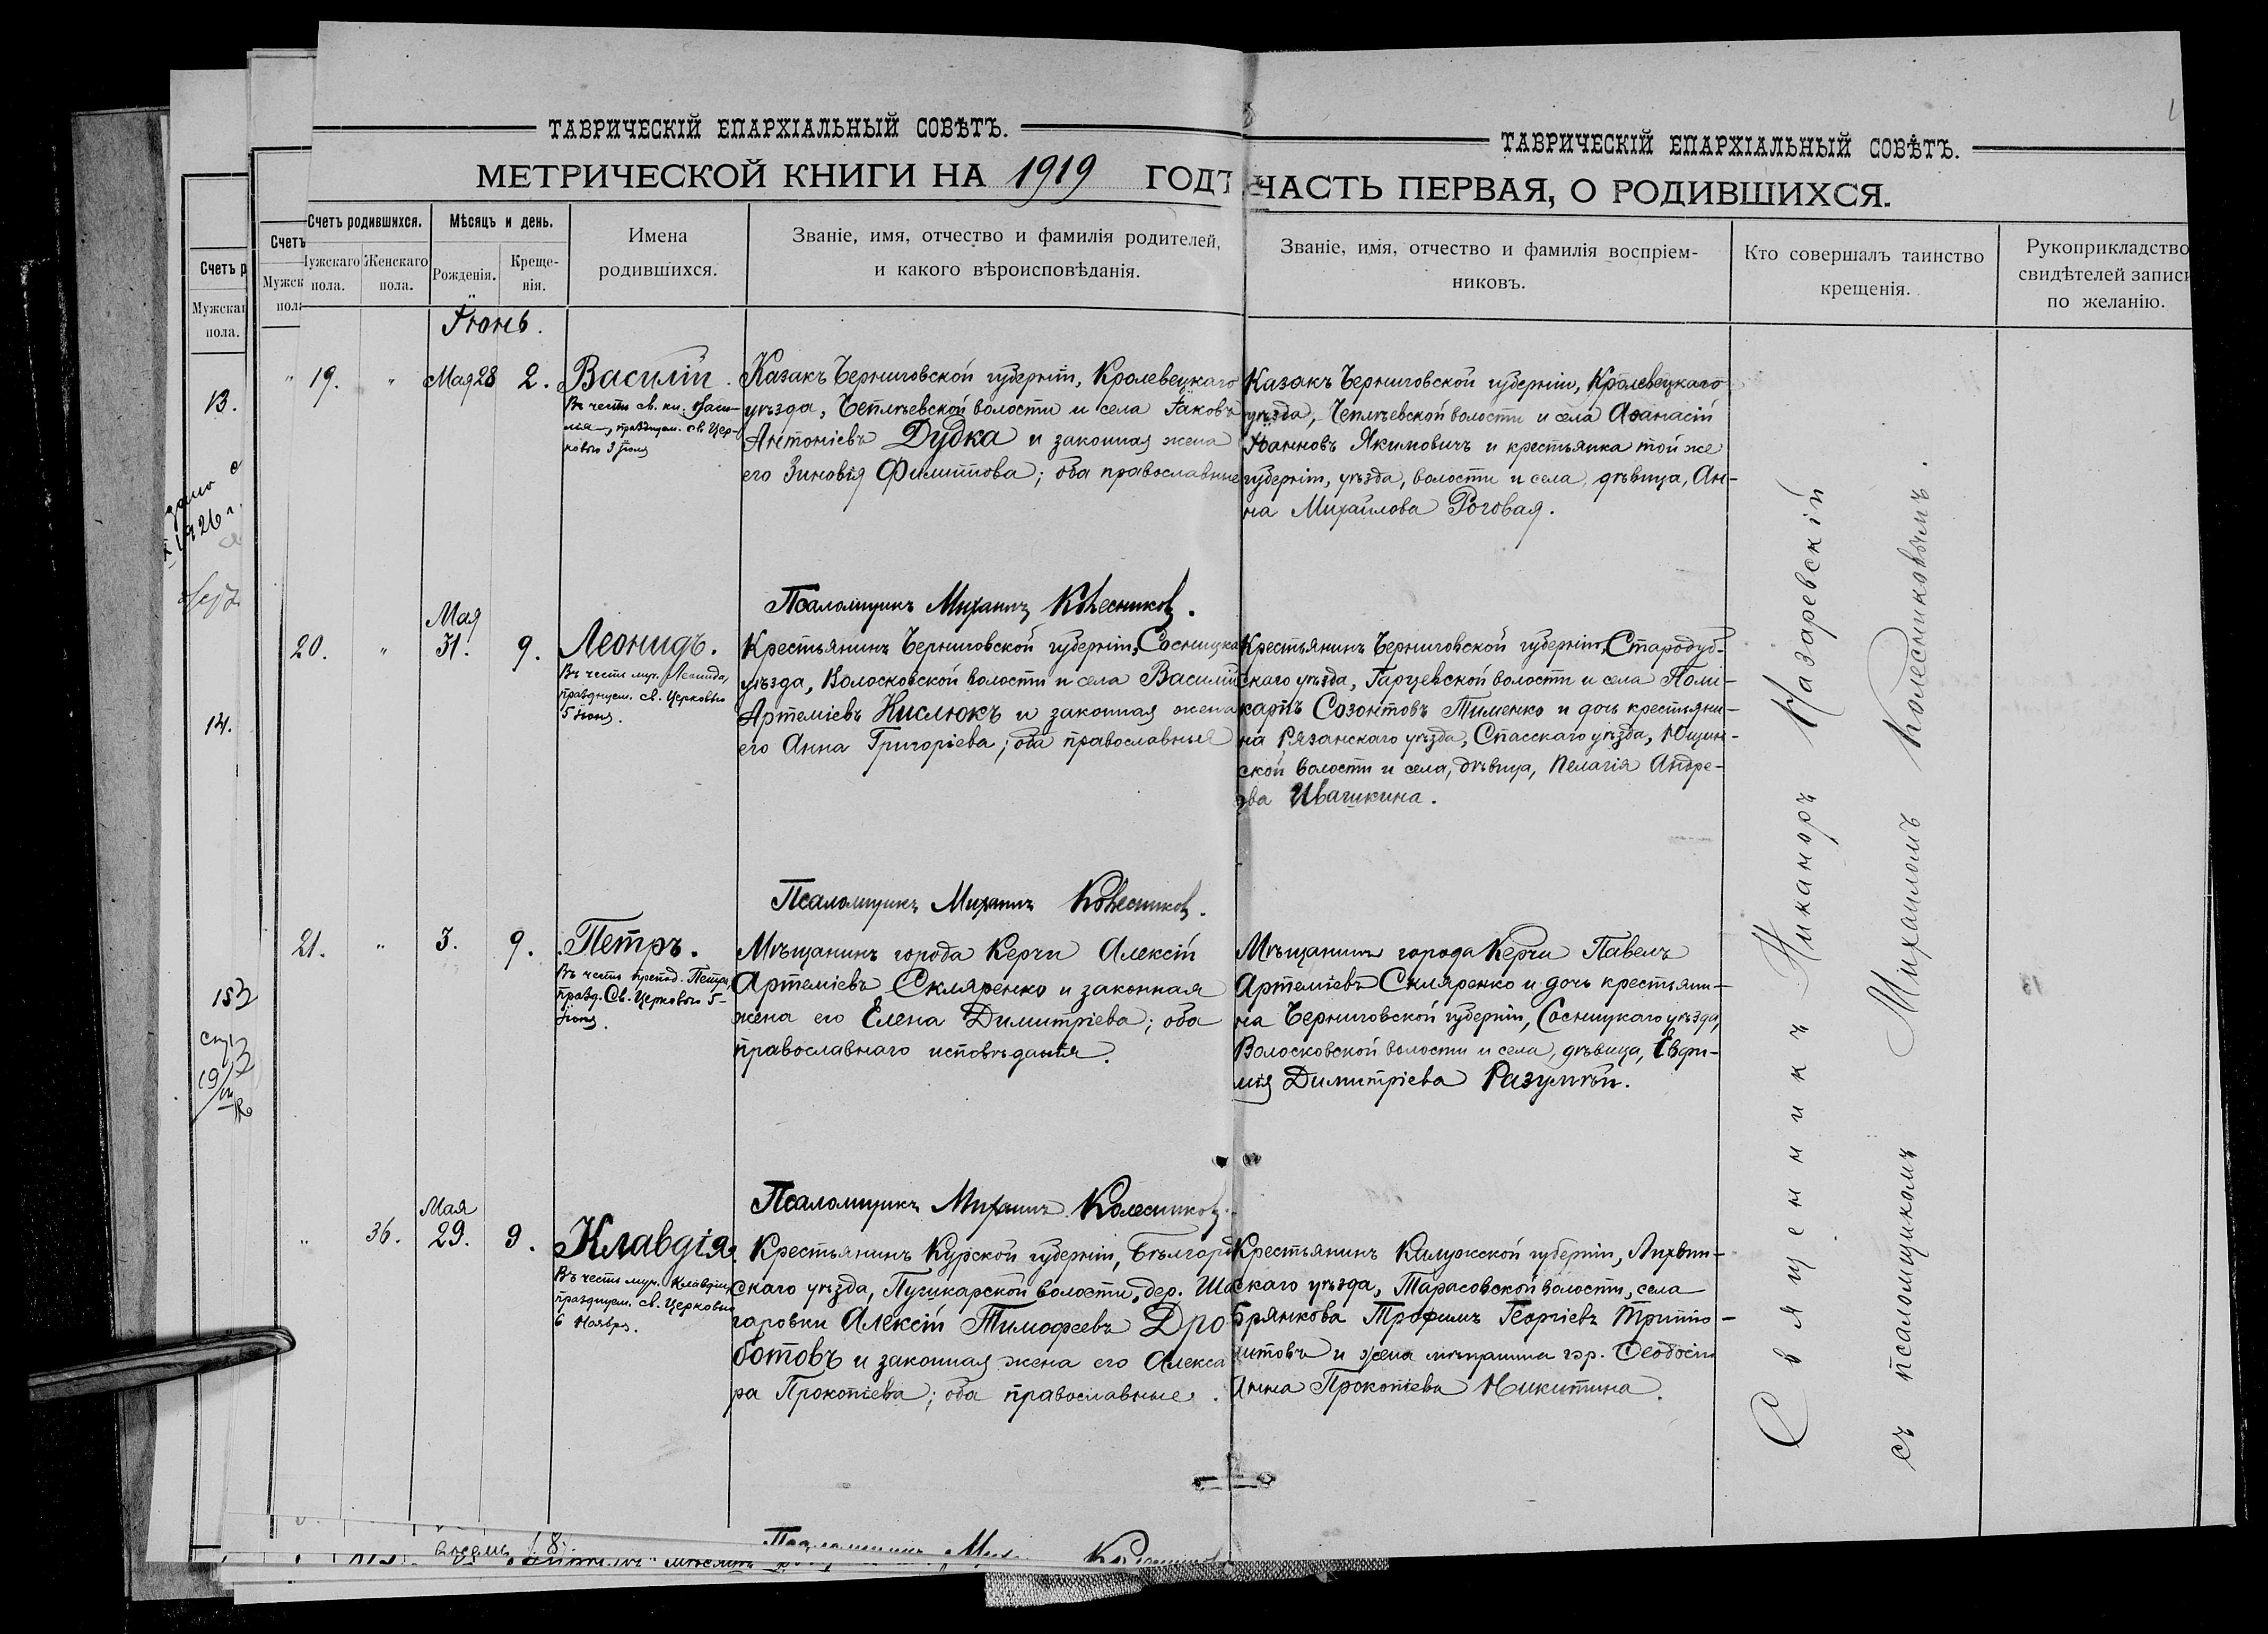 ТАВРИЧЕСКІЙ ЕПАРХІАЛЬНЫЙ СОВѢТЪ.
МЕТРИЧЕСКОЙ КНИГИ НА 1919 ГОДЪ
Счетъ родившихся.
Мужскаго пола.
Женскаго пола.
Мѣсяцъ и день.
Рожденія.
Креще-
нія.
Имена
родившихся.
Званіе, имя, отчество и фамилія родителей,
и какого вѣроисповѣданія.
Іюнь.
19. " Мая 28 2. Василій.
Въ честь св. кн. Васи-
лія, празднуем. св. Цер-
ковью 3 іюля
Казакъ Черниговской губерніи, Кролевецкаго
уѣзда, Чеплѣевской волости и села Іаковъ
Антоніевъ Дудка и законная жена
его Зиновія Филиппова; оба православные
Псаломщикъ Михаилъ Колесниковъ.
20. " Мая
31. 9. Леонидъ.
Въ честь муч. Леонида,
празднуем. св. Церковью
5 іюня.
Крестьянинъ Черниговской губерніи, Сосницка
уѣзда, Волосковской волости и села Василій
Артеміевъ Кислюкъ и законная жена
его Анна Григоріева; оба православные
Псаломщикъ Михаилъ Колесниковъ.
21. " 3. 9. Петръ.
Въ честь препод. Петра,
празд. Св. Церковью 5-
іюня.
Мѣщанинъ города Керчи Алексій
Артеміевъ Скляренко и законная
жена его Елена Димитріева; оба
православнаго исповѣданія.
Псаломщикъ Михаилъ Колесниковъ.
" 36. Мая
29. 9. Клавдія.
Въ честь муч. Клавдіи,
празднуем. св. Церковью
6 Ноября.
Крестьянинъ Курской губерніи, Бѣлгород
скаго уѣзда, Пушкарской волости, дер. Ша
гаровки Алексій Тимофеевъ Дро
ботовъ и законная жена его Алекса
ра Прокопіева; оба православные.
ТАВРИЧЕСКІЙ ЕПАРХІАЛЬНЫЙ СОВѢТЪ.
ЧАСТЬ ПЕРВАЯ, О РОДИВШИХСЯ.
Званіе, имя, отчество и фамилія воспріем-
никовъ.
Кто совершалъ таинство
крещенія.
Рукоприкладство
свидѣтелей записи
по желанію.
Казакъ Черниговской губерніи, Кролевецкаго
уѣзда, Чеплѣевской волости и села Аѳанасій
Іоанновъ Якимовичъ и крестьянка той же
губерніи, уѣзда, волости и села, дѣвица, Ан-
на Михайлова Роговая.
Крестьянинъ Черниговской губерніи, Стародуб-
скаго уѣзда, Гарцевской волости и села Поли-
карпъ Созонтовъ Тименко и дочь крестьяни-
на Рязанскаго уѣзда, Спасскаго уѣзда,
ской волости и села, дѣвица, Пелагія Андре-
ева Ивашкина.
Мѣщанинъ города Керчи Павелъ
Артеміевъ Скляренко и дочь крестьяни-
на Черниговской губерніи, Сосницкаго уѣзда,
Волосковской волости и села, дѣвица, Евфи-
мія Димитріева Разумѣй.
Крестьянинъ Калужской губерніи, Лихвин-
скаго уѣзда, Тарасовской волости, села
Брянкова Трофимъ Георгіевъ
и жена мѣщанина гор. Ѳеодосіи
Анна Прокопіева Никитина.
Священникъ Никаноръ Назаревскій
съ псаломщикомъ Михаиломъ Колесниковымъ.
Счетъ
Счетъ р
Мужскаг
пола.
13.
1926 г.
14.